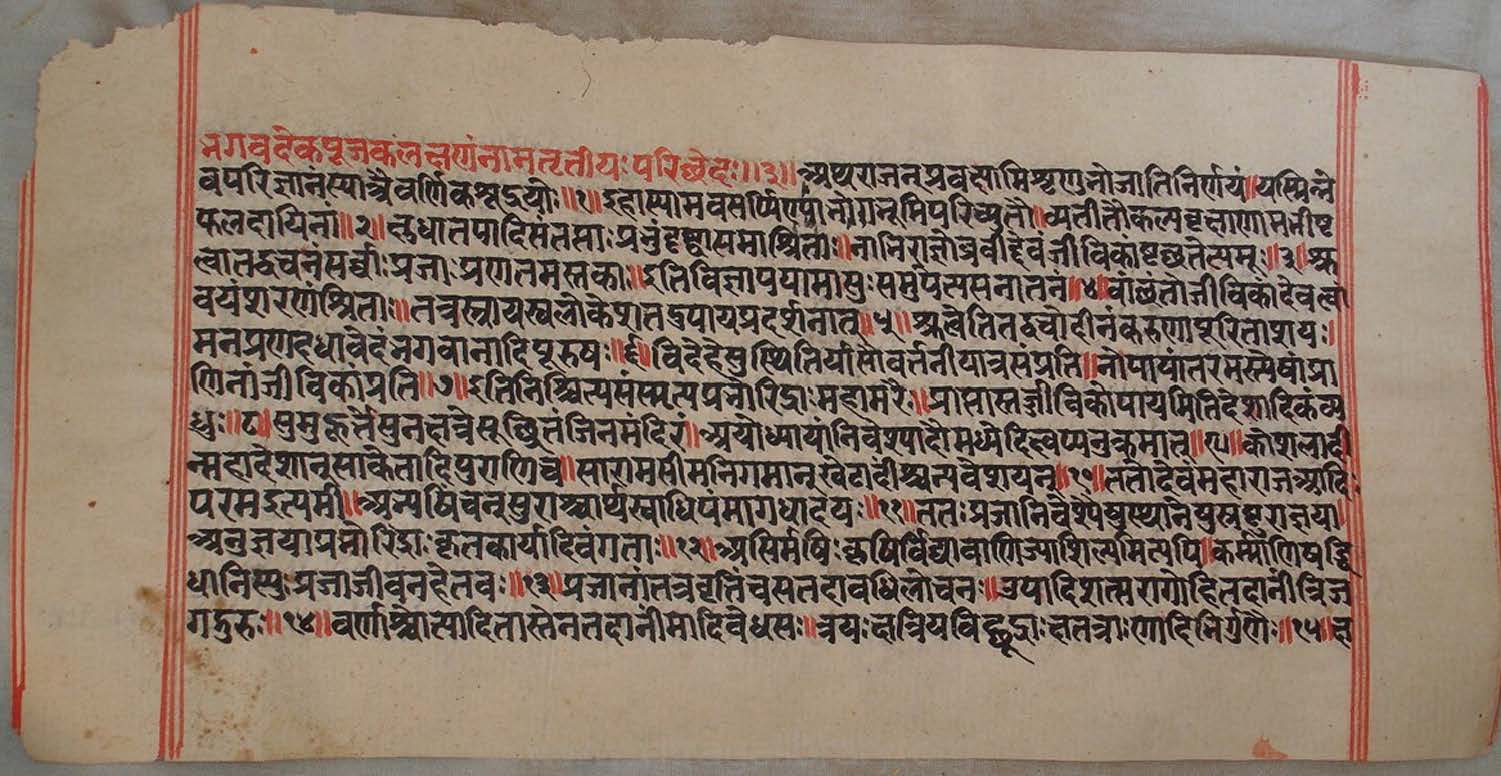 भगवदेकपूजकलक्षणंनामतृतीयःपरिच्छेदः॥३॥अथराजन्प्रवक्ष्यामिशृणुभोजातिनिर्णयं॥यस्मिन्ने
वपरिज्ञानंस्यात्रैवर्णिकशूद्रयोः॥१॥इहास्यामवसर्प्पिण्यांभोगभूमिपरिच्युतौ॥व्यतीतौकल्पवृक्षाणामभीष्ट
फलदायिनां॥२॥क्षुधातपादिसंतप्ताःप्रभुंदृष्ट्वासमाश्रिताः॥नाभिराजोब्रवीद्देवंजीविकांपृच्छतेत्यमूः॥३॥श्रु
त्वातद्वचनंसर्व्वाःप्रजाःप्रणतमस्तकाः॥इतिविज्ञापयामासुःसमुपेत्यसनातनं॥४॥वांछंतोजीविकांदेवत्वां
वयंशरणंश्रिताः॥तन्नस्त्रायस्वलोकेशतदुपायप्रदर्शनात्॥५॥श्रुत्वेतितद्वचोदीनंकरुणापूरिताशयः।
मनप्रणिदधावेवंभगवानादिपूरुषः॥६॥विदेहेसुस्थितिर्यासौवर्तनीयात्रसंप्रति॥नोपायांतरमस्त्येषांप्रा
णिनांजीविकांप्रति॥७॥इतिनिश्चित्यसंस्मृत्यप्रभोरिंद्राःमहामरैः॥प्राप्तास्तज्जीविकोपायमितिदेशादिकंव्य
धुः॥८॥सुमुहूर्तेसुनक्षत्रेसूच्छ्रितंजिनमंदिरं॥अयोध्यायांनिवेश्यादौमध्येदिक्ष्वप्यनुक्रमात्॥९॥कोशलादी
न्महादेशान्साकेतादिपुराणिच॥सारामसीमनिगमान्खेटादींश्चन्यवेशयन्॥१०॥ततोदेवंमहाराजआदिः
परमइत्यमी॥अभ्यषिंचन्सुराश्चार्थस्वाधिपंमागधादयः॥११॥ततःप्रजानिवेश्यैषुस्थानेषुस्रष्टुराज्ञया
अनुज्ञयाप्रभोरिंद्राःकृतकार्यादिवंगताः॥१२॥असिर्मषिःकृषिर्विद्यावाणिज्याशिल्पमित्यपि॥कर्माणिषड्वि
धानिस्युःप्रजाजीवनहेतवः॥१३॥प्रजानांतत्रवृत्तिंचसतदावधिलोचनः॥उपादिशत्सरागोहितदानींत्रिज
गद्गुरुः॥१४॥वर्णाश्चोत्पादितास्तेनतदानीमादिवेधसः॥त्रयःक्षत्रियविट्शूद्राःक्षतत्राणादिभिर्गुणैः॥१५॥क्ष